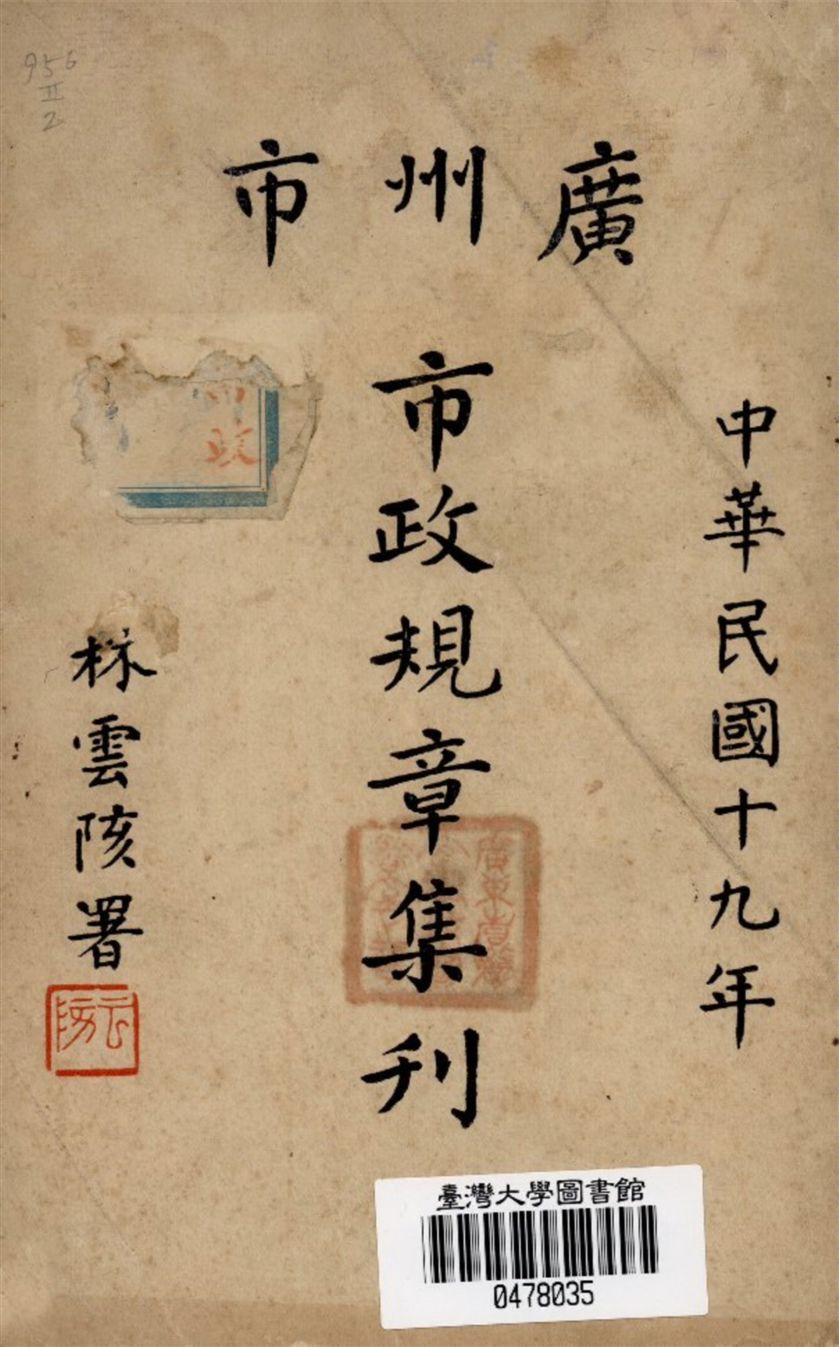 廣州市
中華民國十九年
市政規章集刊
林雲陔署
云陔
市政
廣東省
956
II
2
臺灣大學圖書館
0478035